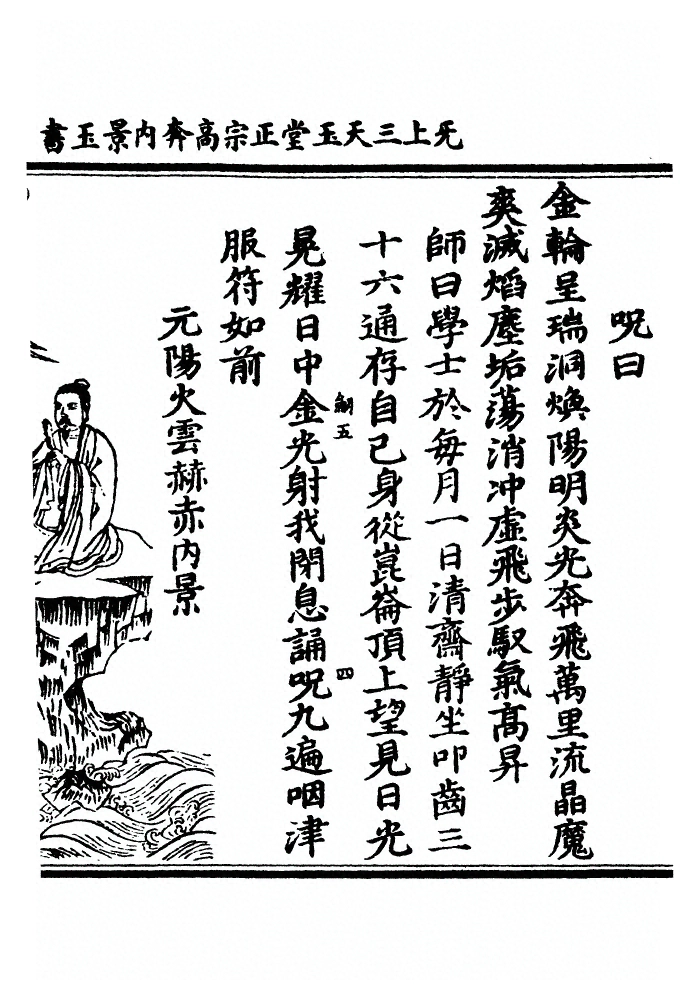 无上三天玉堂正宗高奔內景玉書
呪曰
金輪呈瑞洞煥陽明炎光奔飛萬里流晶魔
爽滅熖塵垢蕩消冲虛飛步馭氣高昇
師曰學士於每月一日清齋靜坐叩齒三
十六通存自己身從崑崙頂上望見日光
五 四
晃耀日中金光射我閉息誦呪九遍咽津
服符如前
元陽火雲赫赤內景